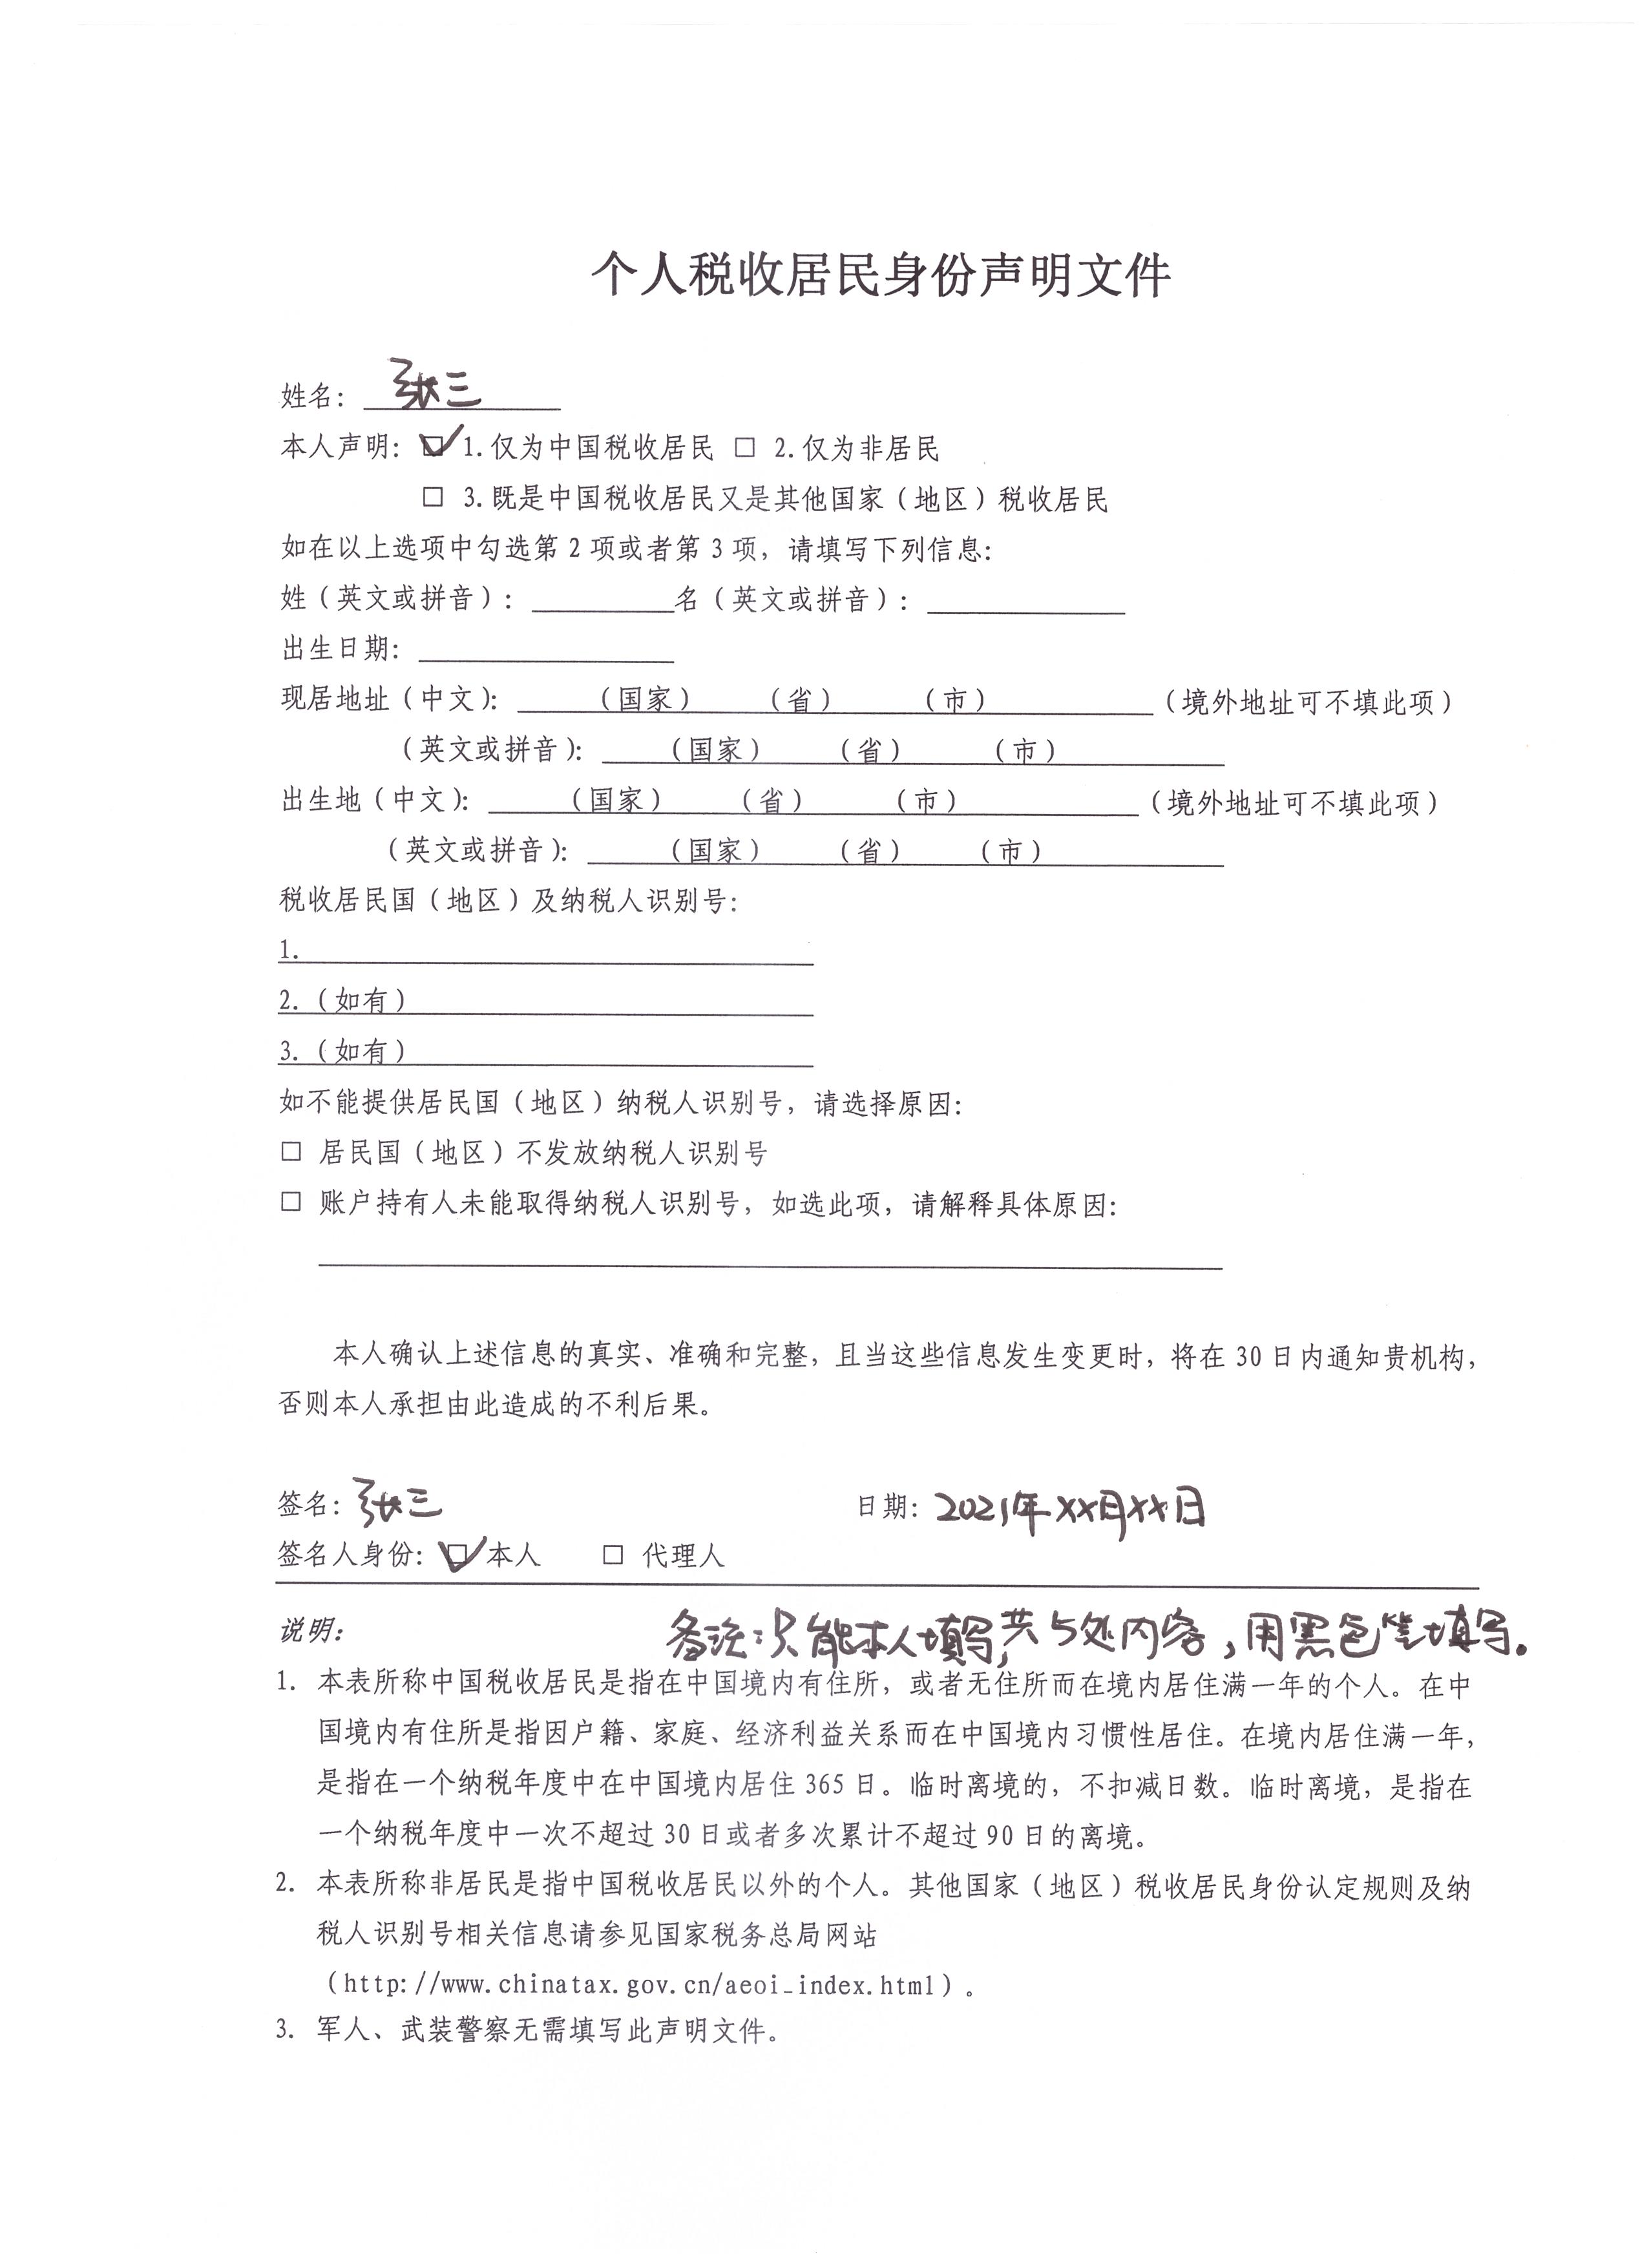 个人税收居民身份声明文件
姓名：张三
本人声明：☑ 1.仅为中国税收居民 □ 2.仅为非居民
□ 3.既是中国税收居民又是其他国家（地区）税收居民
如在以上选项中勾选第 2 项或者第 3 项，请填写下列信息：
姓（英文或拼音）：________名（英文或拼音）：________
出生日期：________
现居地址（中文）：____（国家）____（省）____（市）________（境外地址可不填此项）
（英文或拼音）：____（国家）____（省）____（市）________
出生地（中文）：____（国家）____（省）____（市）________（境外地址可不填此项）
（英文或拼音）：____（国家）____（省）____（市）________
税收居民国（地区）及纳税人识别号：
1.________
2.（如有）________
3.（如有）________
如不能提供居民国（地区）纳税人识别号，请选择原因：
□ 居民国（地区）不发放纳税人识别号
□ 账户持有人未能取得纳税人识别号，如选此项，请解释具体原因：
本人确认上述信息的真实、准确和完整，且当这些信息发生变更时，将在 30 日内通知贵机构，
否则本人承担由此造成的不利后果。
签名：张三 日期：2021年XX月XX日
签名人身份：☑ 本人 □ 代理人
说明： 备注：只能本人填写，共5处内容，用黑色笔填写。
1. 本表所称中国税收居民是指在中国境内有住所，或者无住所而在境内居住满一年的个人。在中
国境内有住所是指因户籍、家庭、经济利益关系而在中国境内习惯性居住。在境内居住满一年，
是指在一个纳税年度中在中国境内居住 365 日。临时离境的，不扣减日数。临时离境，是指在
一个纳税年度中一次不超过 30 日或者多次累计不超过 90 日的离境。
2. 本表所称非居民是指中国税收居民以外的个人。其他国家（地区）税收居民身份认定规则及纳
税人识别号相关信息请参见国家税务总局网站
（http://www.chinatax.gov.cn/aeoi_index.html）。
3. 军人、武装警察无需填写此声明文件。